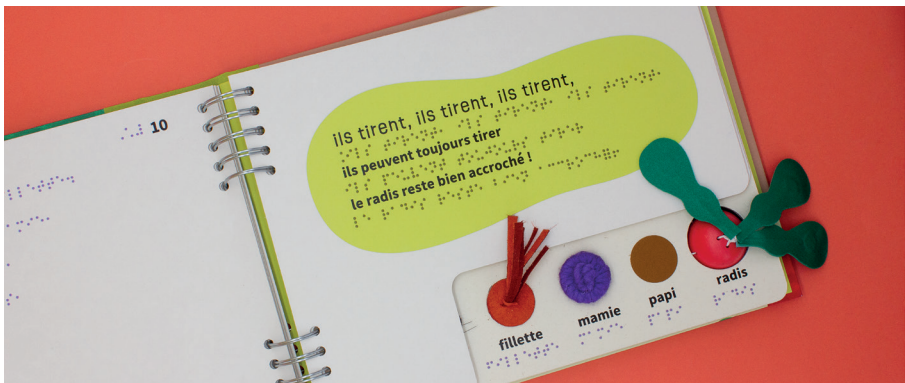 10
ils tirent, ils tirent, ils tirent,
ils peuvent toujours tirer
le radis reste bien accroché !
fillette
mamie
papi
radis